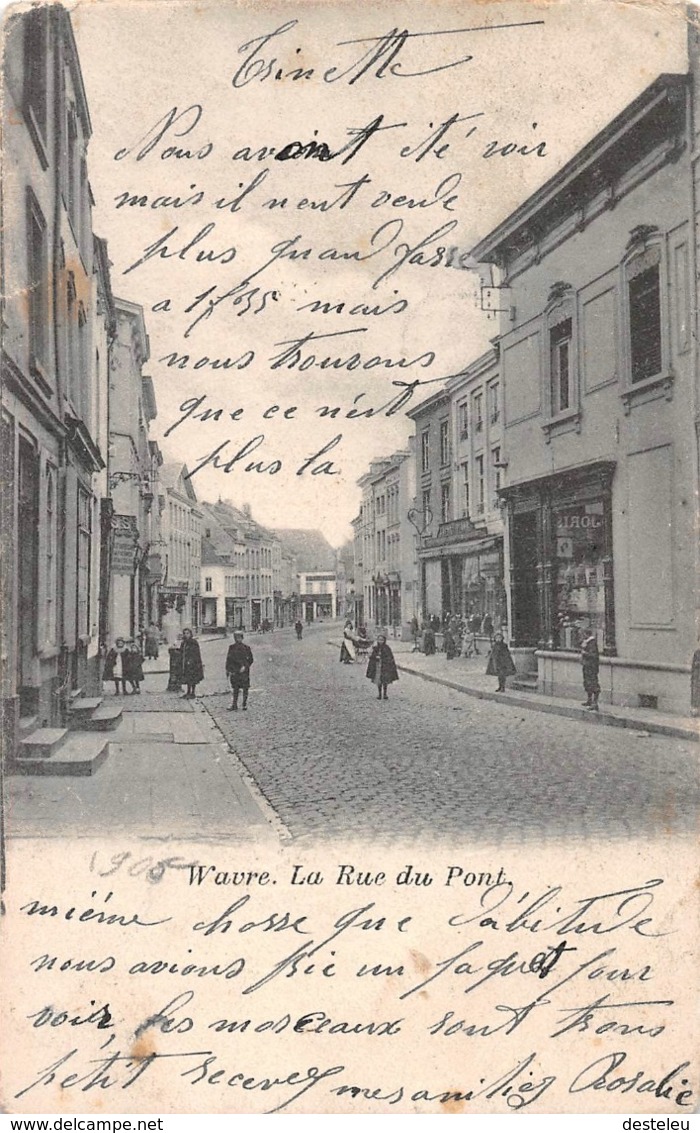 Trinette
Nous avont été voir
mais il n'ent vende
plus quand fasse
a 1f35 mais
nous trouvons
que ce n'ést
plus la
JORIS
1905
Wavre. La Rue du Pont.
miéme chosse que d'abitude
nous avions pric un paquet pour
voir les morceaux sont trons
petit recevez mes amitiez Rosalie
delcampe.net
desteleu